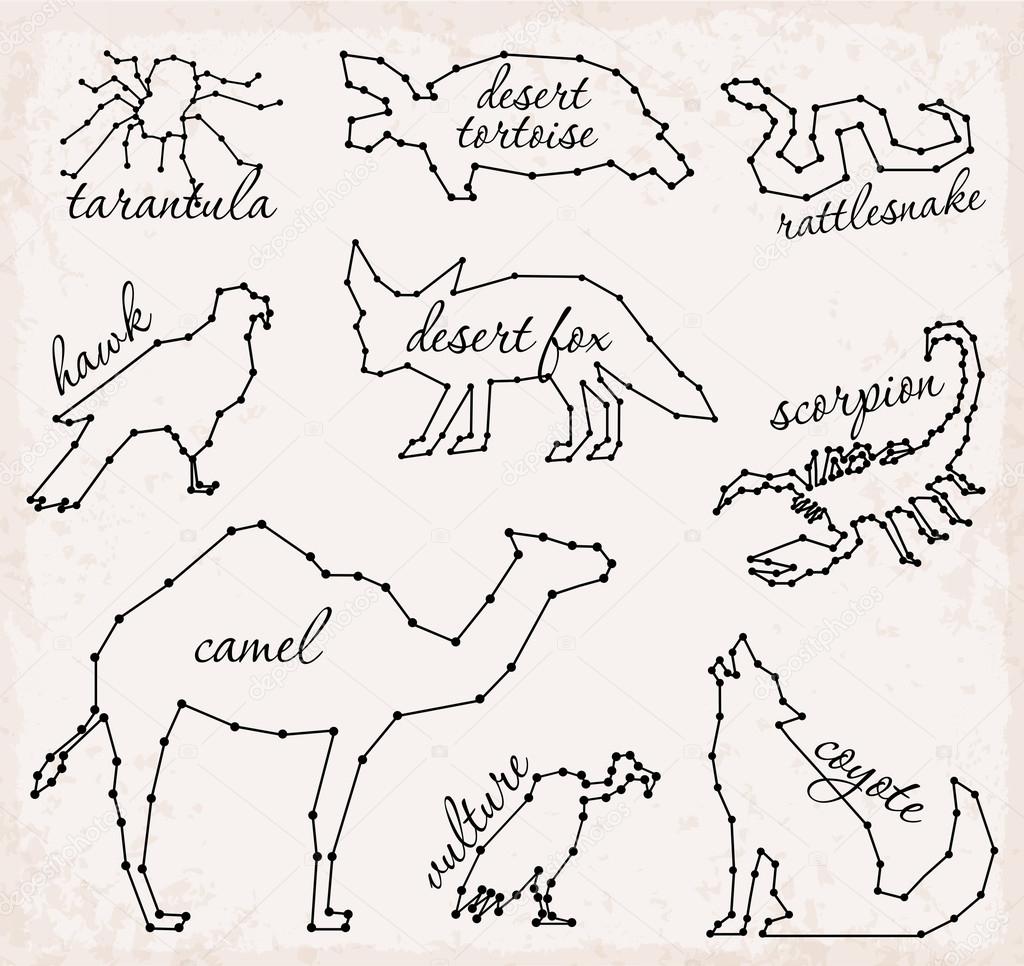 desert
tortoise
tarantula
rattlesnake
hawk
desert fox
scorpion
camel
vulture
coyote
depositphotos